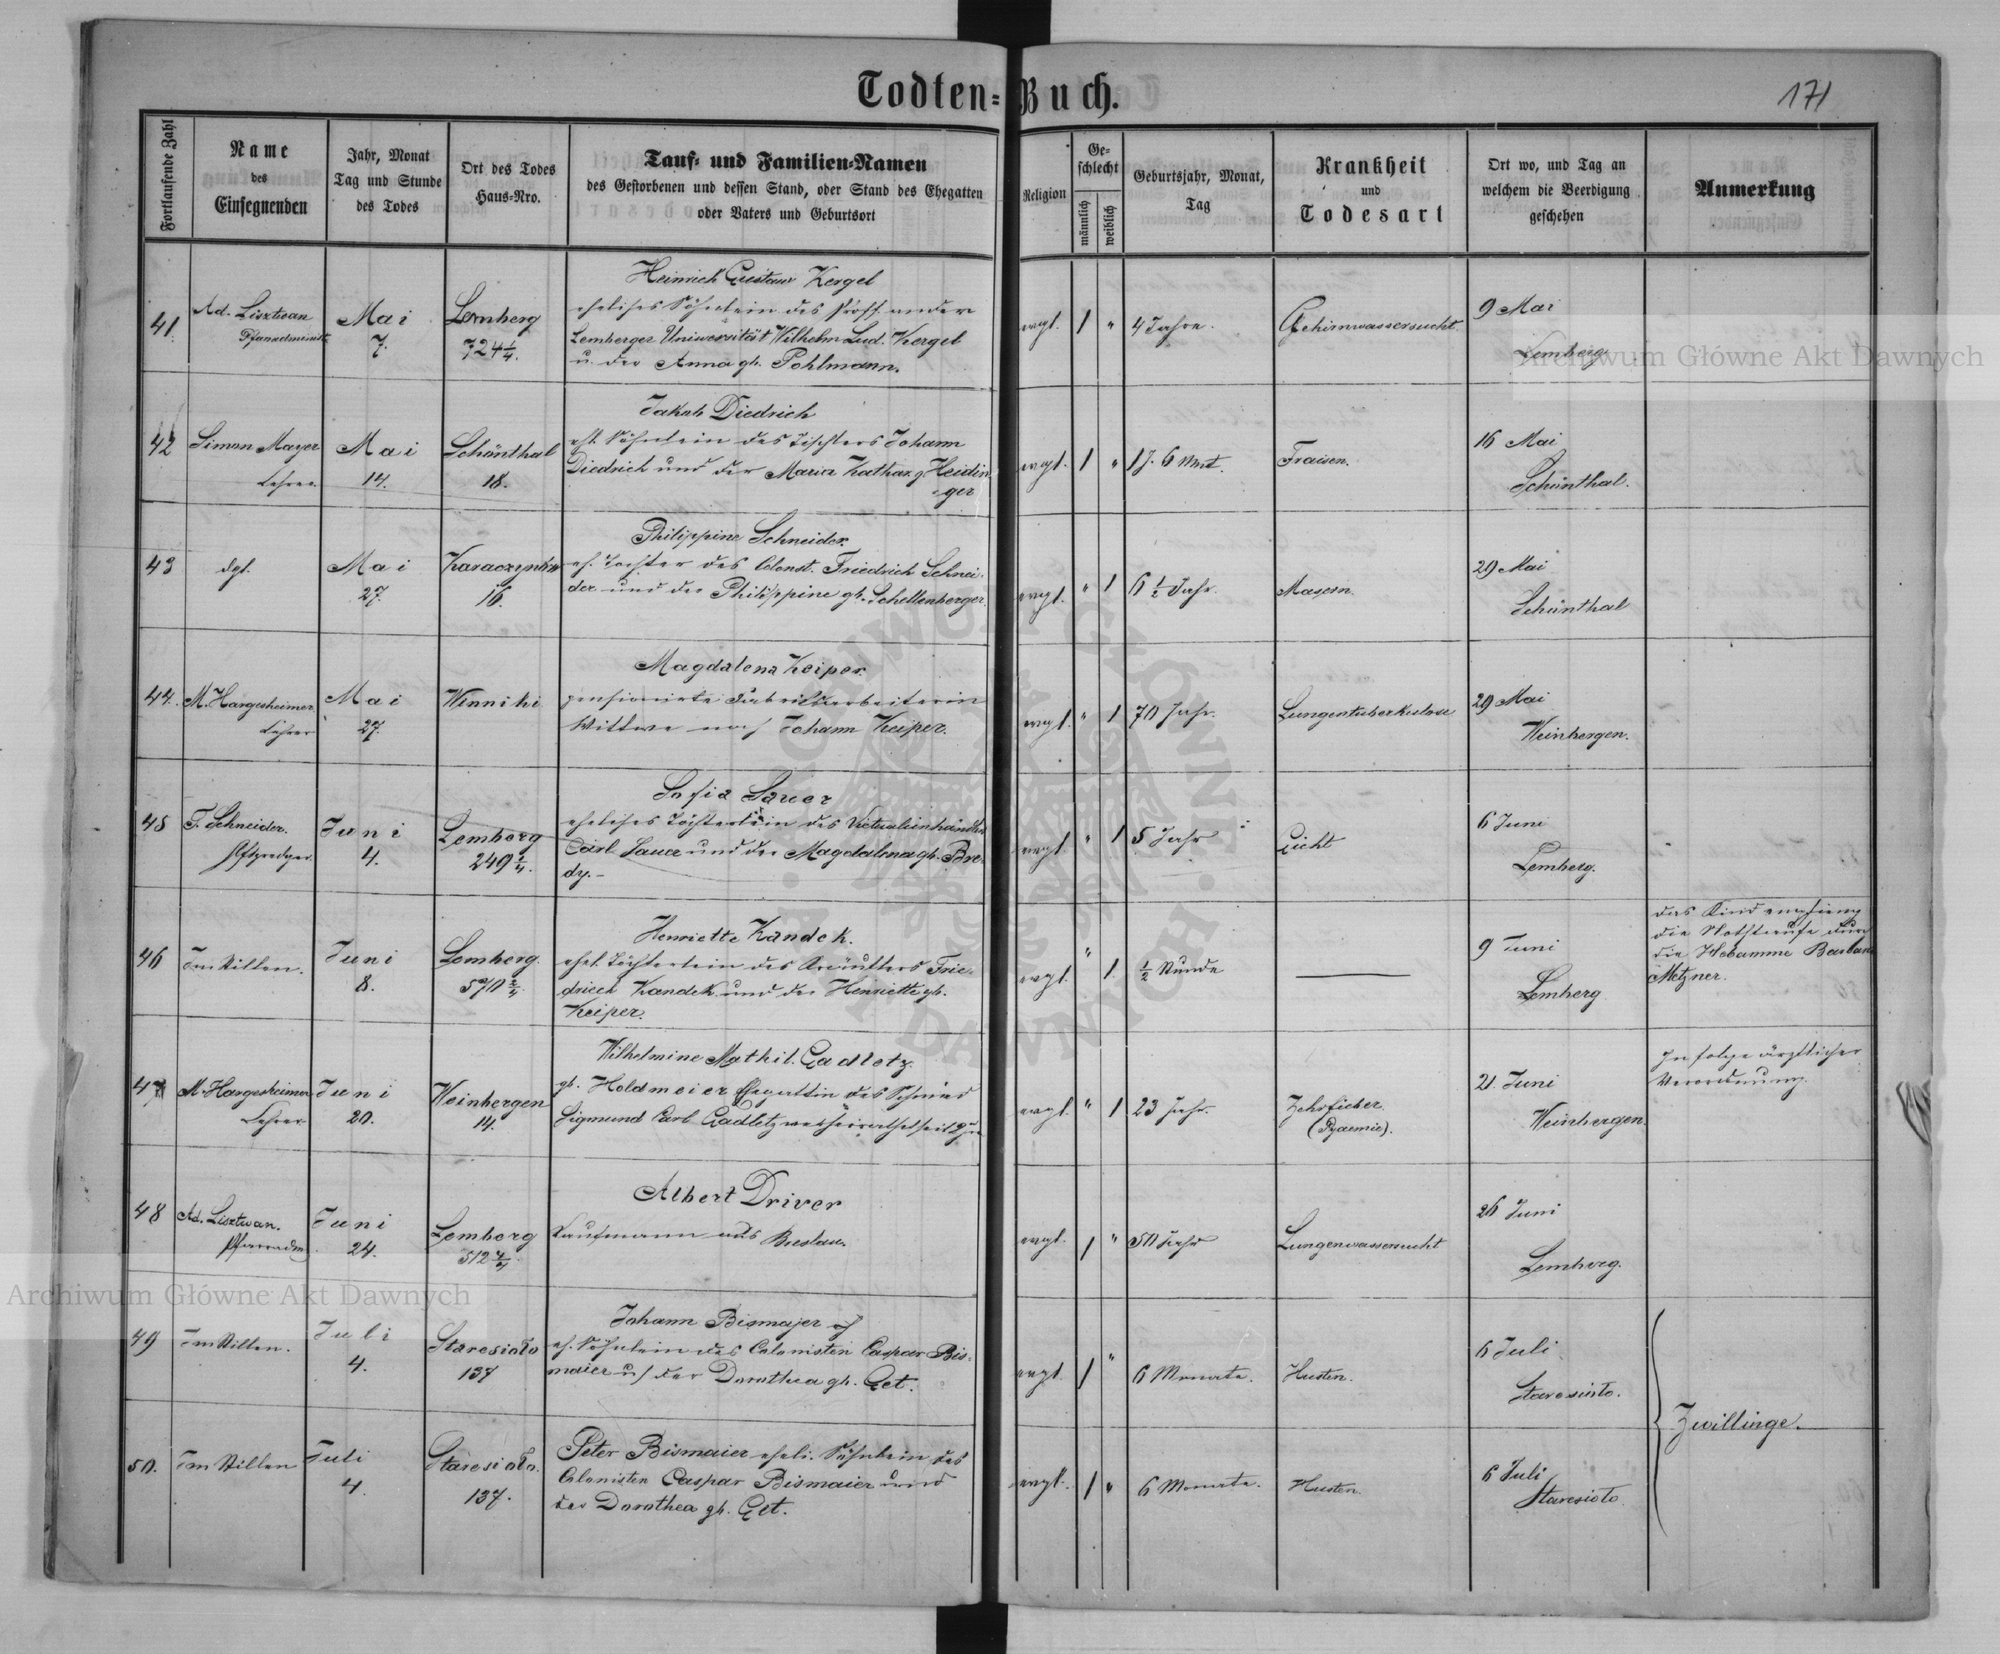 Todten-Buch.
171
Fortlaufende Zahl
Name
des
Einsegnenden
Jahr, Monat
Tag und Stunde
des Todes
Ort des Todes
Haus-Nro.
Tauf- und Familien-Namen
des Gestorbenen und dessen Stand, oder Stand des Ehegatten
oder Vaters und Geburtsort
Religion
Ge-
schlecht
männlich
weiblich
Geburtsjahr, Monat,
Tag
Krankheit
und
Todesart
Ort wo, und Tag an
welchem die Beerdigung
geschehen
Anmerkung
41.
Ad. Lisztwan
Mai
7.
Lemberg
724 1/4.
Heinrich Gustaw Kergel
eheliches Söhnlein des Proff. an der
Lemberger Uniwersität Wilhelm Lud. Kergel
u. der Anna gb. Pohlmann.
evgl. 1 "
4 Jahre.
Gehirnwassersucht.
9 Mai
Lemberg.
42
Simon Mayer
Lehrer
Mai
14.
Schönthal
18.
Jakob Diedrich
ehl. Söhnlein des Tischlers Johann
Diedrich und der Maria Kathar. g. Heidin-
ger
evgl. 1 "
1 J. 6 Mnt.
Fraisen.
16 Mai
Schönthal.
43
dgl.
Mai
27.
16.
Philippine Schneider.
eh. Tochter des Colonst. Friedrich Schnei-
der und der Philippine gb. Schellenberger.
evgl. " 1
6 1/2 Jahr.
Masern.
29 Mai
Schönthal
44.
M. Hargesheimer
Lehrer
Mai
27.
Winniki
Magdalena Keiper.
pensionirte Fabriksarbeiterin
Wittwe nach Johann Keiper.
evgl. " 1
70 Jahr.
Lungentuberkulose
29 Mai
Weinbergen.
45
F. Schneider.
Juni
4.
Lemberg
249 2/4.
Sofia Sauer
eheliches Töchterlein des Victualienhändlers
Carl Sauer und der Magdalena gb. Bre-
dy.-
evgl. " 1
5 Jahr
Gicht
6 Juni
Lemberg.
46
Im Stillen.
Juni
8.
Lemberg.
570 2/4.
Henriette Kandek.
ehel. Töchterlein des Frie-
drich Kandek und der Henriette gb.
Keiper.
evgl. " 1
1/2 Stunde
9 Juni
Lemberg
das Kind empfieng
die Nothtaufe durch
die Hebamme Barbara
Metzner.
47
M. Hargesheimer
Lehrer
Juni
20.
Weinbergen
14.
Wilhelmine Mathil. Gadletz
gb. Holdmeier Ehegattin des Schmied
Sigmund Carl Gadletz verheirathet seit
evgl. " 1
23 Jahr.
Zehrfieber
(Pyaemie).
21. Juni
Weinbergen.
In folge ärztlicher
Verordnung.
48
Ad. Lisztwan.
Pfarradm.
Juni
24.
Lemberg
512 4/4.
Albert Driver
Kaufmann aus Breslau.
evgl. 1 "
50 Jahr
Lungenwassersucht
26 Juni
Lemberg.
49
Im Stillen.
Juli
4.
Staresioło
137
Johann Bismajer
eh. Söhnlein des Colonisten Caspar Bis-
maier u der Dorothea gb. Get.
evgl. 1 "
6 Monate.
Husten.
6 Juli
Staresioło.
Zwillinge.
50.
Im Stillen
Juli
4.
Staresioło.
137.
Peter Bismaier eheli. Söhnlein des
Colonisten Caspar Bismaier und
der Dorothea gb. Get.
evgl. 1 "
6 Monate.
Husten.
6 Juli
Staresioło.
Archiwum Główne Akt Dawnych
Archiwum Główne Akt Dawnych
ARCHIWUM GŁÓWNE AKT DAWNYCH